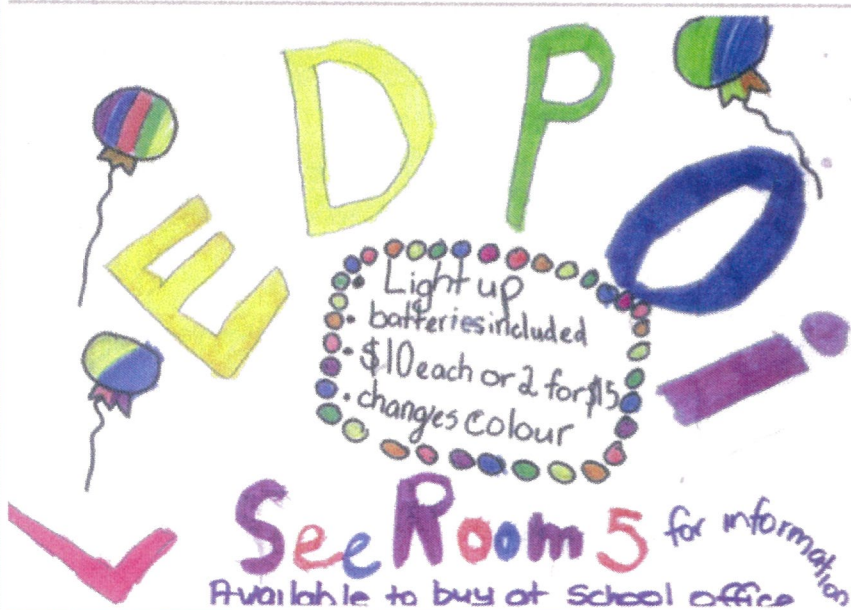 LED POi
• Light up
• batteries included
• $10 each or 2 for $15
• changes colour
See Room 5 for information
Available to buy at School office